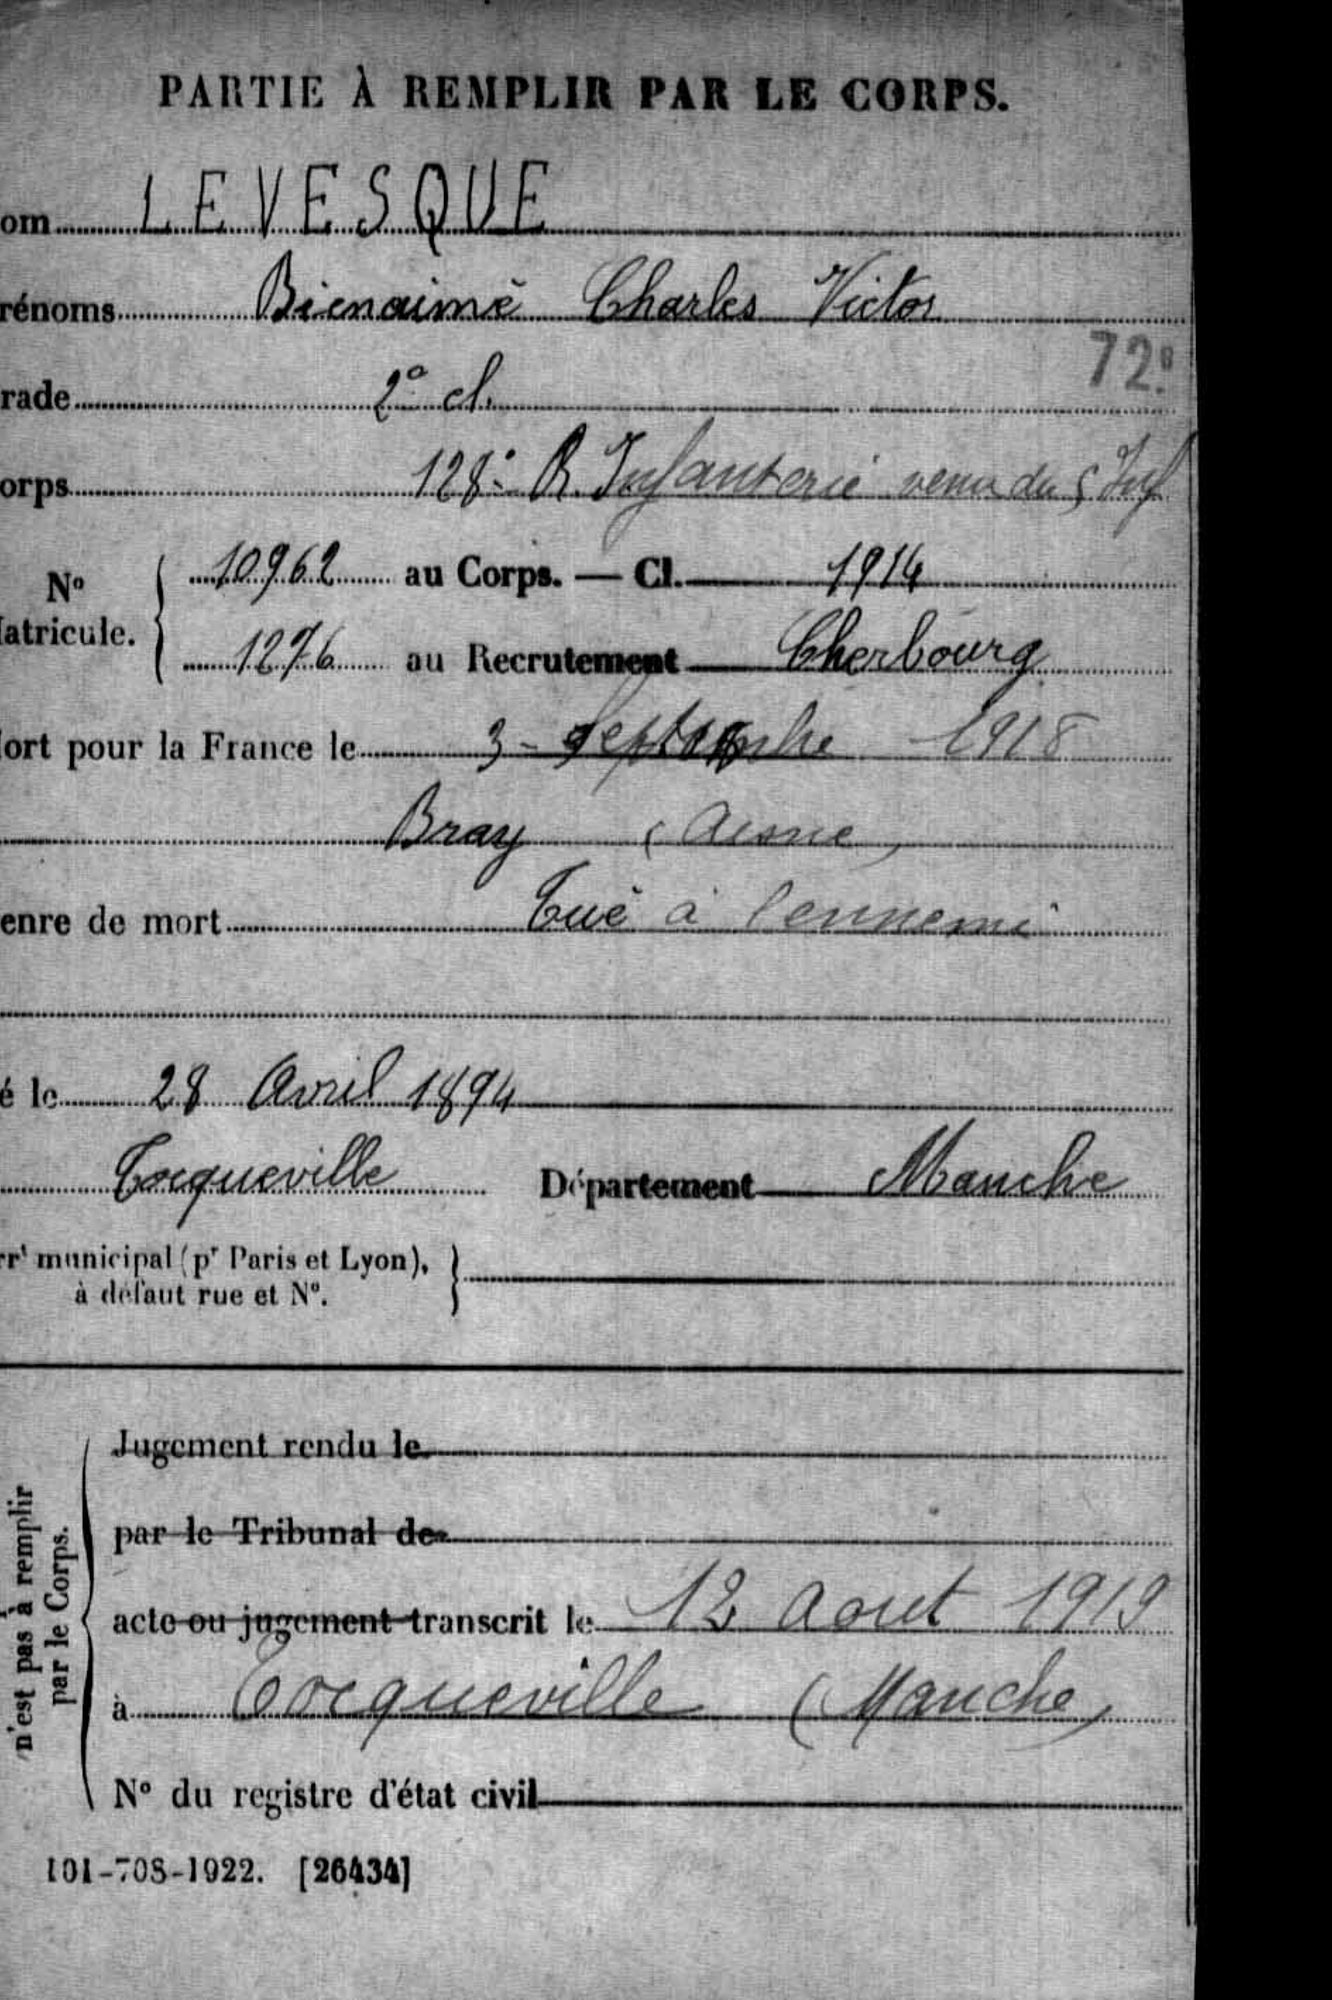 PARTIE À REMPLIR PAR LE CORPS.
om LEVESQUE
rénoms Bienaimé Charles Victor
72e
rade 2e cl.
orps 128e R. Infanterie venu du 5 Inf
N° atricule. 10962 au Corps. — Cl. 1914
1276 au Recrutement Cherbourg
ort pour la France le 3 - Septembre 1918
Bray (Aisne)
enre de mort Tué à l'ennemi
é le 28 Avril 1894
Tocqueville Département Manche
rrt municipal (pr Paris et Lyon),
à défaut rue et N°.
Jugement rendu le
par le Tribunal de
acte ou jugement transcrit le 12 Aout 1919
à Tocqueville (Manche)
N° du registre d'état civil
n'est pas à remplir
par le Corps.
101-708-1922. [26434]